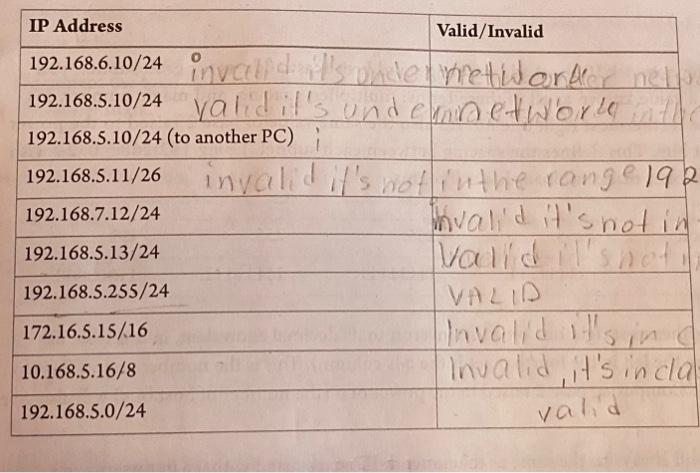 IP Address Valid/Invalid
192.168.6.10/24 invalid it's under network under
192.168.5.10/24 valid it's under network in the
192.168.5.10/24 (to another PC) i
192.168.5.11/26 invalid it's not in the range 192
192.168.7.12/24 invalid it's not in
192.168.5.13/24 Valid it's not i
192.168.5.255/24 VALID
172.16.5.15/16 Invalid it's in c
10.168.5.16/8 Invalid, it's in cla
192.168.5.0/24 valid